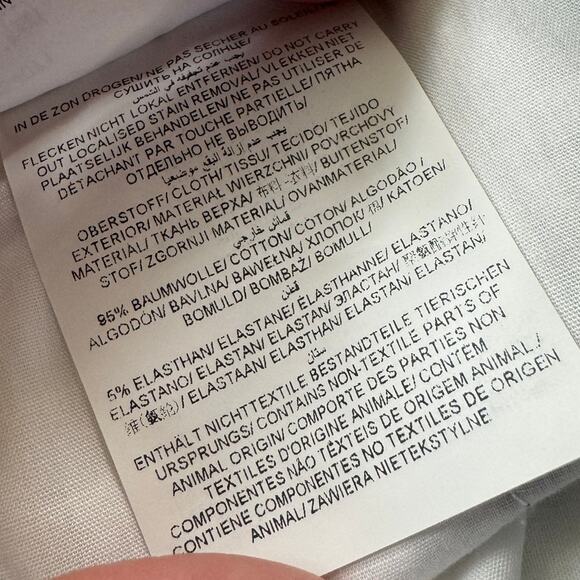 IN DE ZON DROGEN/ NE PAS SÉCHER AU SOLEIL/
СУШИТЬ НА СОЛНЦЕ/
يجب عدم تجفيفه في الشمس
FLECKEN NICHT LOKAL ENTFERNEN/ DO NOT CARRY
OUT LOCALISED STAIN REMOVAL/ VLEKKEN NIET
PLAATSELIJK BEHANDELEN/ NE PAS UTILISER DE
DÉTACHANT PAR TOUCHE PARTIELLE/ ПЯТНА
ОТДЕЛЬНО НЕ ВЫВОДИТЬ/
يجب عدم إزالة البقع موضعيا
OBERSTOFF/ CLOTH/ TISSU/ TECIDO/ TEJIDO
EXTERIOR/ MATERIAŁ WIERZCHNI/ POVRCHOVÝ
MATERIAL/ ТКАНЬ ВЕРХА/ 布料-衣料/ BUITENSTOF/
STOF/ ZGORNJI MATERIAL/ OVANMATERIAL/
قماش خارجي
95% BAUMWOLLE/ COTTON/ COTON/ ALGODÃO /
ALGODÓN/ BAVLNA/ BAWEŁNA/ ХЛОПОК/ 棉/ KATOEN/
BOMULD/ BOMBAŽ/ BOMULL/
قطن
5% ELASTHAN/ ELASTANE/ ÉLASTHANNE/ ELASTANO/
ELASTANO/ ELASTAN/ ELASTAN/ ЭЛАСТАН/
/ ELASTAAN/ ELASTHAN/ ELASTAN/ ELASTAN/
ENTHÄLT NICHTTEXTILE BESTANDTEILE TIERISCHEN
URSPRUNGS/ CONTAINS NON-TEXTILE PARTS OF
ANIMAL ORIGIN/ COMPORTE DES PARTIES NON
TEXTILES D'ORIGINE ANIMALE/ CONTÉM
COMPONENTES NÃO TÊXTEIS DE ORIGEM ANIMAL./
CONTIENE COMPONENTES NO TEXTILES DE ORIGEN
ANIMAL/ ZAWIERA NIETEKSTYLNE